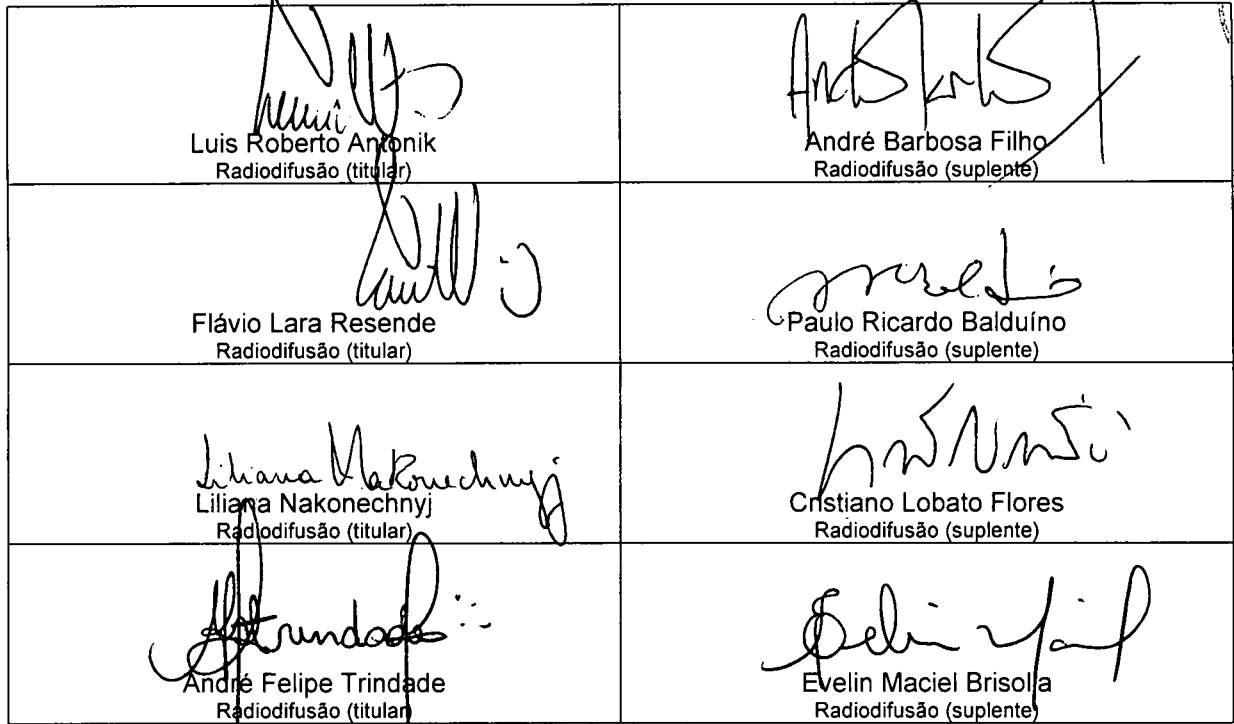 Luis Roberto Antonik
Radiodifusão (titular)
André Barbosa Filho
Radiodifusão (suplente)
Flávio Lara Resende
Radiodifusão (titular)
Paulo Ricardo Balduíno
Radiodifusão (suplente)
Liliana Nakonechnyj
Liliana Nakonechnyj
Radiodifusão (titular)
Cristiano Lobato Flores
Radiodifusão (suplente)
André Felipe Trindade
Radiodifusão (titular)
Evelin Maciel Brisolla
Radiodifusão (suplente)